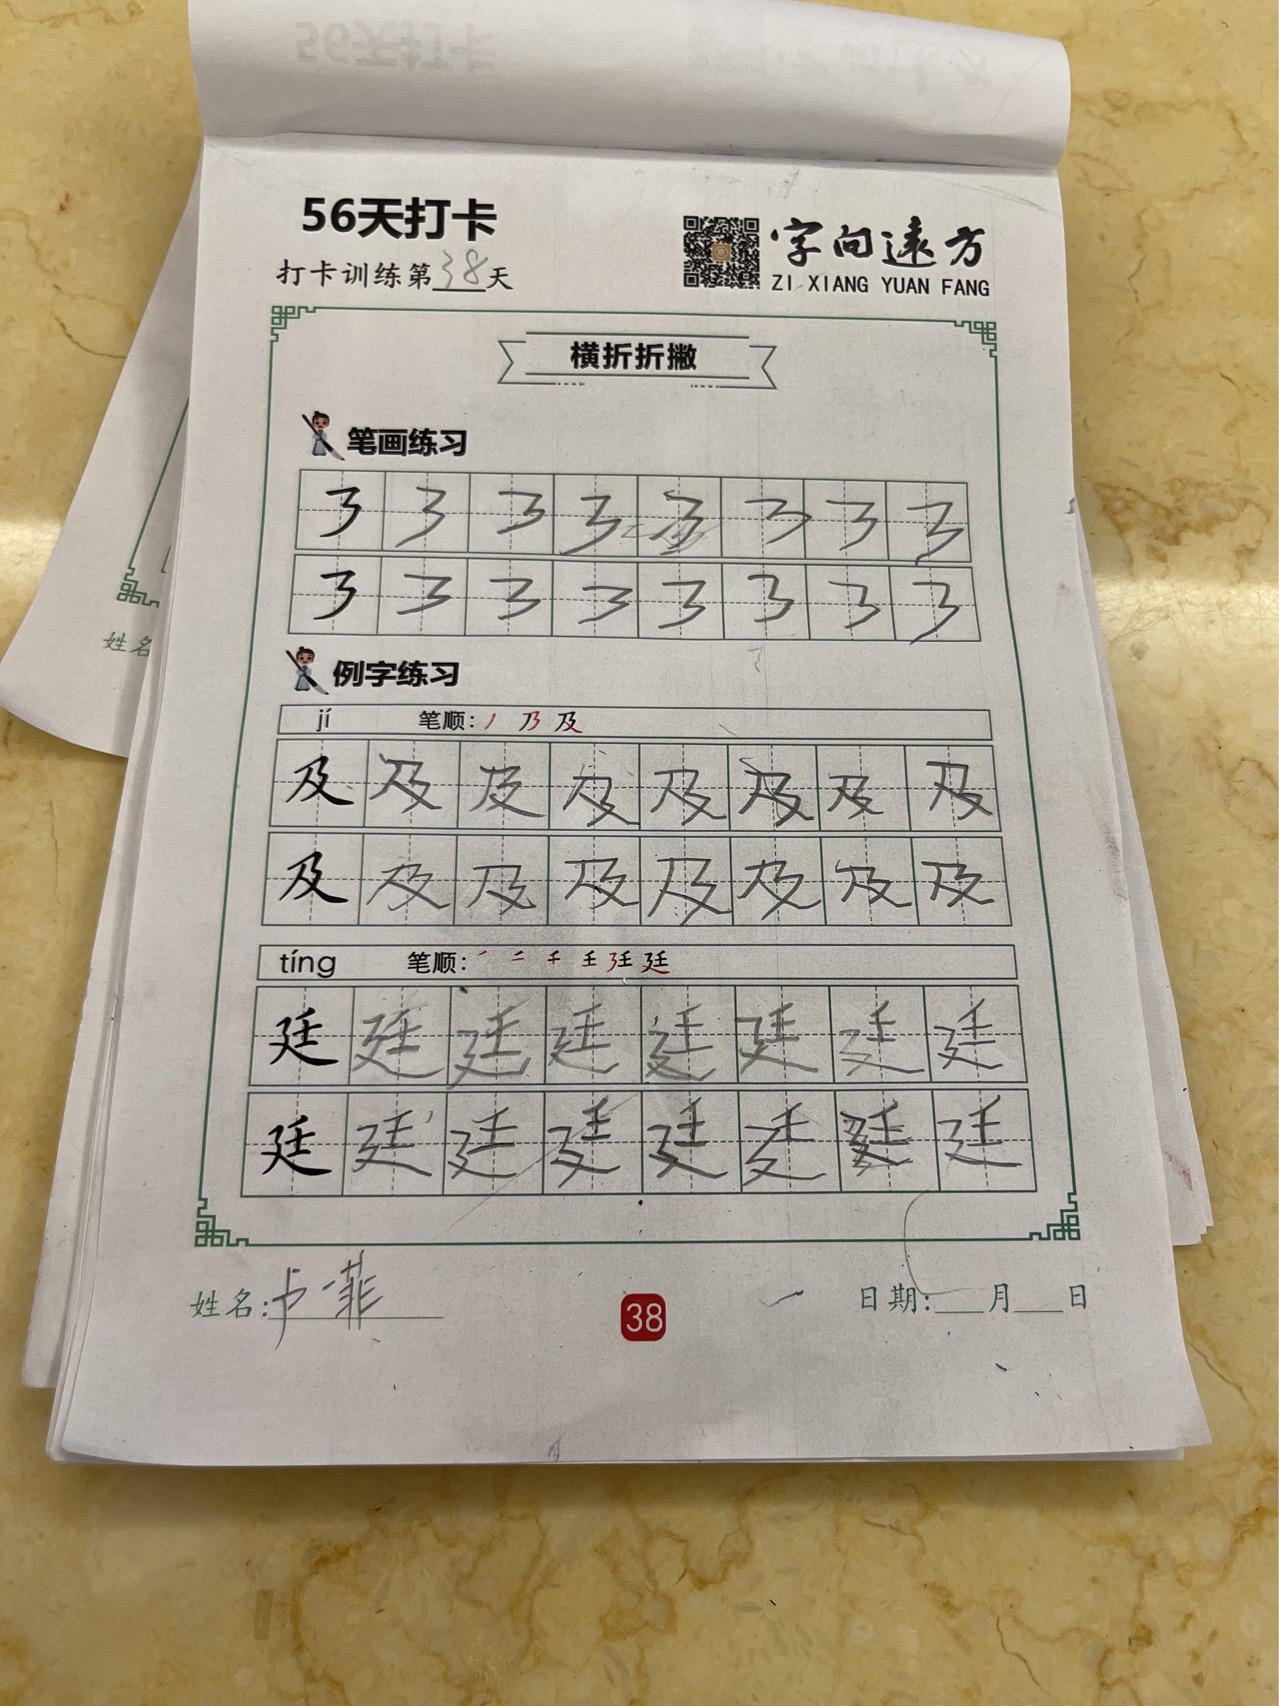 56天打卡
打卡训练第38天
字向遠方
ZI XIANG YUAN FANG
横折折撇
笔画练习
例字练习
jí 笔顺: 丿 乃 及
及 及 及 及 及 及 及 及
及 及 及 及 及 及 及 及
tíng 笔顺: 廷
廷 廷 廷 廷 廷 廷 廷 廷
廷 廷 廷 廷 廷 廷 廷 廷
姓名
姓名: 卢一菲
38
日期:___月___日